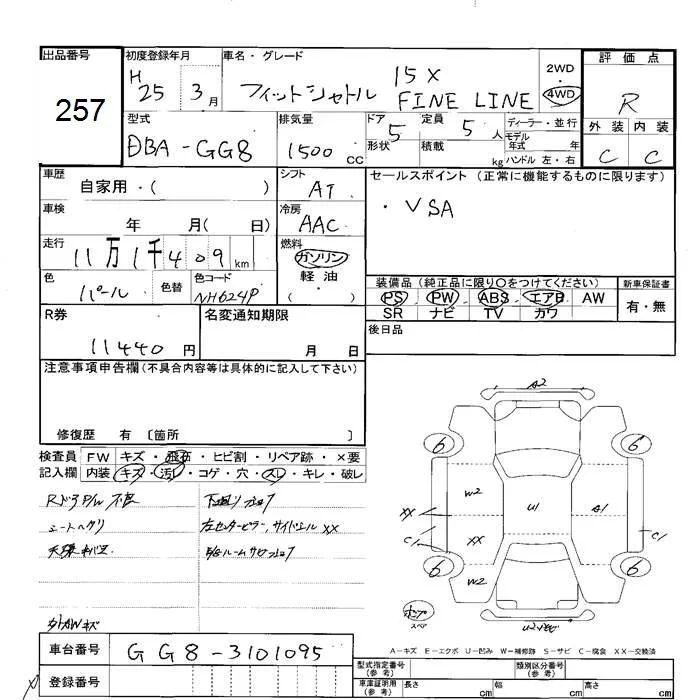 出品番号
257
初度登録年月
H 25 3月
車名・グレード
フィットシャトル 15X FINE LINE
2WD
・
4WD
評価点
R
外装 内装
C C
型式
DBA-GG8
排気量
1500 CC
ドア 5
形状
定員 5 人
積載 kg
ディーラー・並行
モデル年式 年
ハンドル 左・右
車歴
自家用・( )
シフト
AT
セールスポイント (正常に機能するものに限ります)
・VSA
車検
年 月( 日)
冷房
AAC
走行
11万1千409km
燃料
ガソリン
軽油
( )
色
パール
色替
色コード
NH624P
装備品 (純正品に限り○をつけてください)
PS PW ABS エアB AW
SR ナビ TV カワ
新車保証書
有・無
R券
11440 円
名変通知期限
月 日
後日品
注意事項申告欄(不具合内容等は具体的に記入して下さい)
修復歴 有 〔箇所 〕
検査員記入欄
FW キズ・飛石・ヒビ割・リペア跡・×要
内装 キズ・汚れ・コゲ・穴・スレ・キレ・破レ
RドアP/W不良
シートヘタリ
下廻りサビ
左センターピラー、サイドシル XX
外AWキズ
A2
6 6
W2 U1 A1
XX XX
C1 C1
6 6
W2
スペア
A-キズ E-エクボ U-凹み W-補修跡 S-サビ C-腐食 XX-交換済
車台番号
GG8-3101095
登録番号
型式指定番号(参考)
類別区分番号(参考)
車庫証明用(参考)
長さ cm
幅 cm
高さ cm